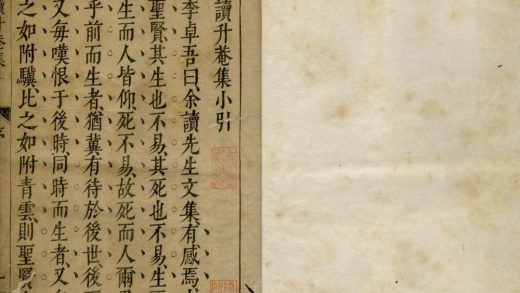 讀升菴集小引
李卓吾曰余讀先生文集有感焉
聖賢其生也不易其死也不易
生而人皆仰死不易故死而人爾
乎前而生者猶冀有待於後世後
又每嘆恨于後時同時而生者又
之如附驥比之如附青雲則聖賢